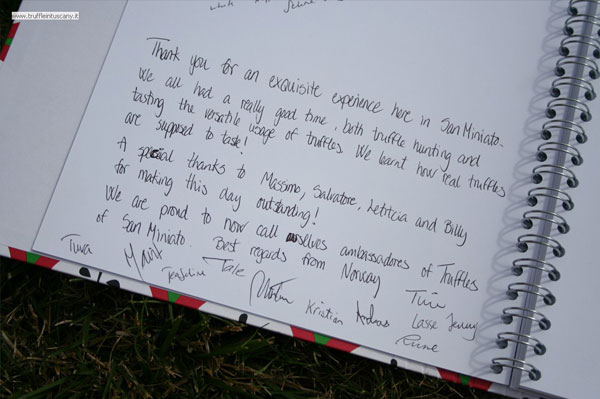 www.truffleintuscany.it
Thank you for an exquisite experience here in San Miniato.
We all had a really good time, both truffle hunting and
tasting the versatile usage of truffles. We learnt how real truffles
are supposed to taste!
A special thanks to Massimo, Salvatore, Letitcia and Billy
for making this day outstanding!
We are proud to now call ourselves ambassadores of Truffles
of San Miniato. Best regards from Norway
Tuva Marit Tale Kristian Andreas Lasse Jenny
Rune